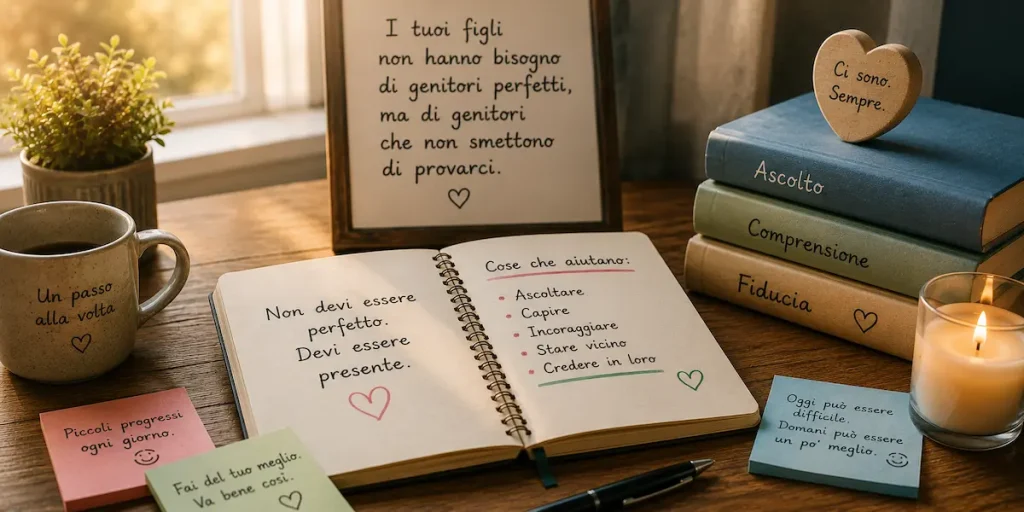 I tuoi figli
non hanno bisogno
di genitori perfetti,
ma di genitori
che non smettono
di provarci.
Ci sono.
Sempre.
Ascolto
Comprensione
Fiducia
Un passo
alla volta
Non devi essere
perfetto.
Devi essere
presente.
Cose che aiutano:
• Ascoltare
• Capire
• Incoraggiare
• Stare vicino
• Credere in loro
Piccoli progressi
ogni giorno.
Fai del tuo meglio.
Va bene così.
Oggi può essere
difficile.
Domani può essere
un po' meglio.